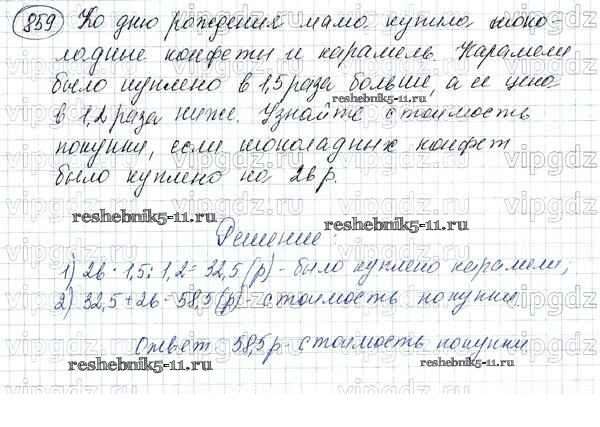 859 Ко дню рождения мама купила шоко-
ладные конфеты и карамель. Карамели
было куплено в 1,5 раза больше, а ее цена
reshebnik5-11.ru
в 1,2 раза ниже. Узнайте стоимость
покупки, если шоколадных конфет
было куплено на 26 р.
reshebnik5-11.ru reshebnik5-11.ru
Решение:
1) 26 · 1,5 : 1,2 = 32,5 (р) - было куплено карамели;
2) 32,5 + 26 = 58,5 (р) - стоимость покупки
Ответ 58,5 р - стоимость покупки
reshebnik5-11.ru reshebnik5-11.ru
vipgdz